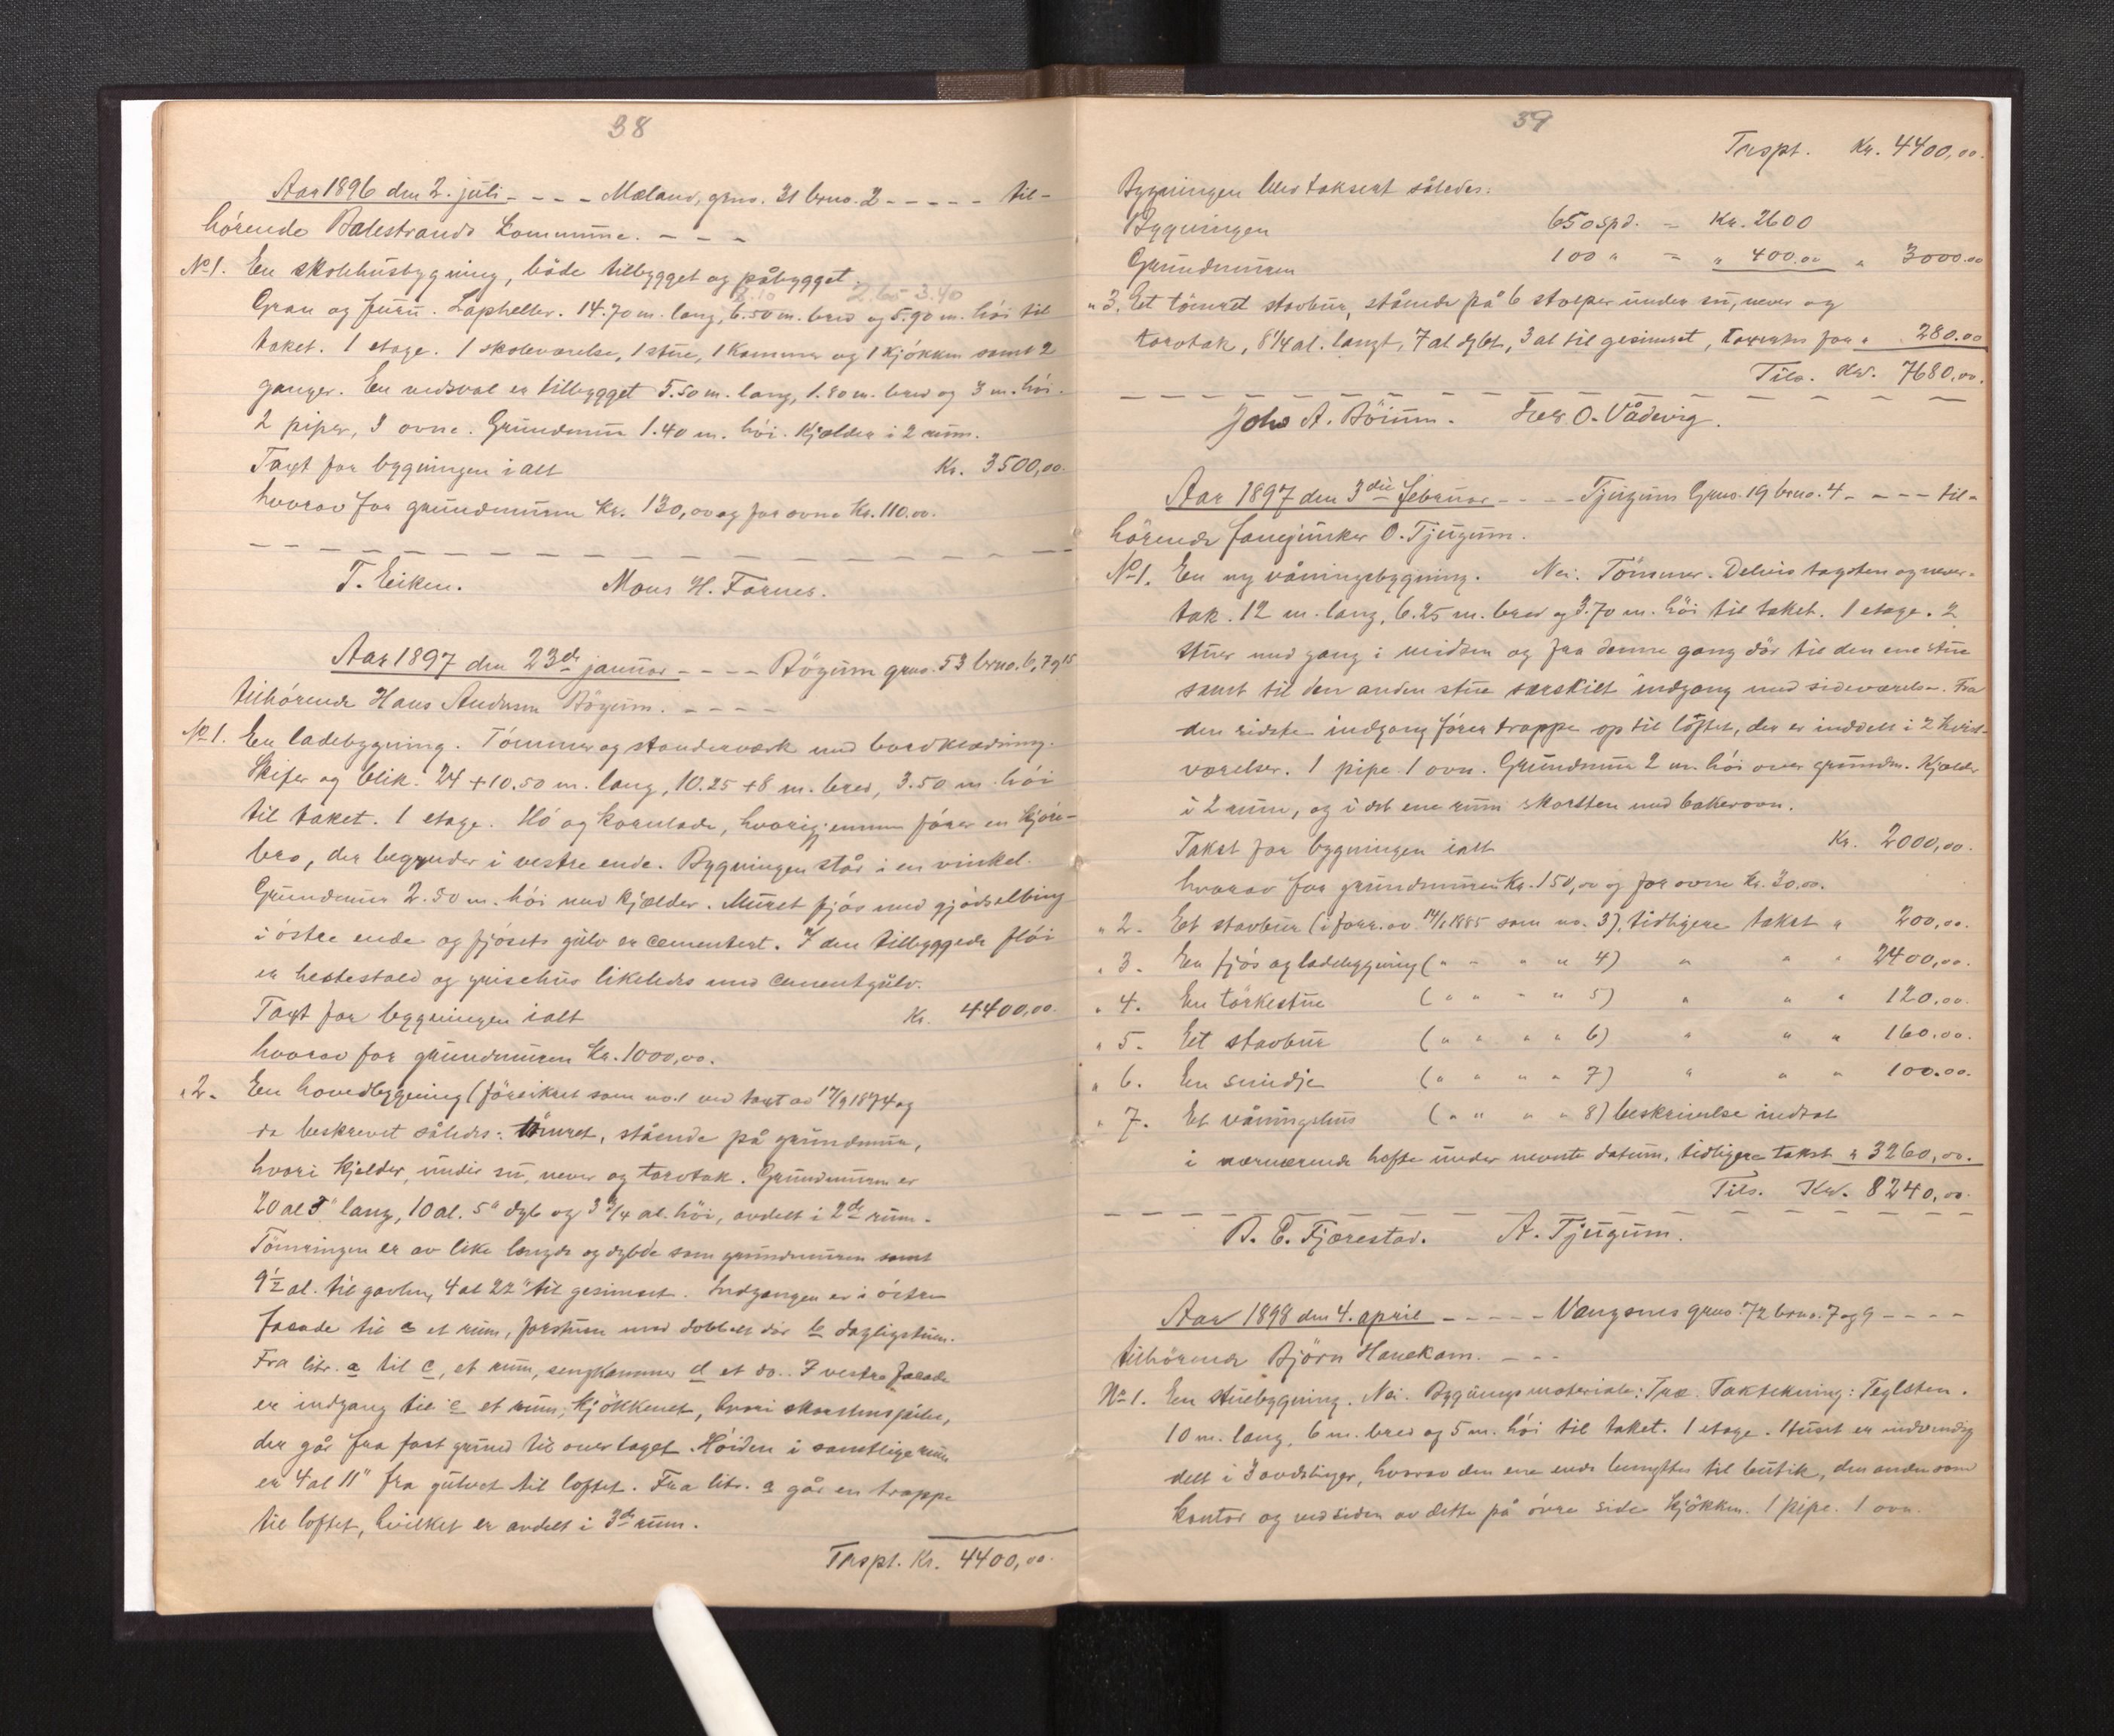 38
Aar 1896 den 2. juli - - - - Mæland, grno. 31 brno. 2 - - - - - til-
hörende Balestrands Kommune. - - -
No 1. En skolehusbygning, både tilbygget og påbygget.
2.10 2.65 3.40
Gran og furu. Lapheller. 14.70 m. lang, 6.50 m. bred og 5.90 m. höi til
taket. 1 etage. 1 skoleværelse, 1 stue, 1 kammer og 1 kjökken samt 2
ganger. En vedsval er tilbygget 5.50 m. lang, 1.80 m. bred og 3 m. höi.
2 piper, 3 ovne. Grundmur 1.40 m. höi. Kjælder i 2 rum.
Taxt for bygningen ialt Kr. 3500,00.
hvorav for grundmuren Kr. 130,00 og for ovne Kr. 110.00.
T. Eiken. Mons H. Farnes.
Aar 1897 den 23de januar - - - - Bögum grno. 53 brno. 6,7 og 15
tilhörende Hans Andersen Bögum. - - - -
No 1. En ladebygning. Tömmer og standerværk med bordklædning.
Skifer og blik. 24 + 10.50 m. lang, 10.25 + 8 m. bred, 3.50 m. höi
til taket. 1 etage. Hö og kornlade, hvorigjennem förer en kjöre-
bro, der begynder i vestre ende. Bygningen står i en vinkel.
Grundmur 2.50 m. höi med kjælder. Muret fjös med gjödselbing
i östre ende og fjösets gulv er cementert. I den tilbyggede flöi
er hestestald og grisehus likeledes med cementgulv.
Taxt for bygningen ialt Kr. 4400,00.
hvorav for grundmuren Kr. 1000,00.
" 2. En hovedbygning (försikret som no. 1 ved taxt av 17/9 1874 og
da beskrevet således: tömret, stående på grundmur,
hvori kjelder, under su, never og torvtak. Grundmuren er
20 al 5" lang, 10 al. 5" dyb og 3 3/4 al. höi, avdelt i 2de rum.
Tömringen er av like længde og dybde som grundmuren samt
9 1/2 al. til gavlen, 4 al 22" til gesimset. Indgangen er i östre
facade til a et rum, forstuen med dobbelt dör b dagligstuen.
Fra litr. a til c, et rum, sengkammer d et do. I vestre facade
er indgang til e et rum, kjökkenet, hvori skorstenspibe,
der går fra fast grund til over taget. Höiden i samtlige rum
er 4 al 11" fra gulvet til loftet. Fra litr. a går en trappe
til loftet, hvilket er avdelt i 3de rum.
Trspt. Kr. 4400,00.
39
Trspt. Kr. 4400,00.
Bygningen blev taksert således:
Bygningen 650 spd. = Kr. 2600
Grundmuren 100 " = " 400.00 " 3000.00
" 3. Et tömret stavbur, stående på 6 stolper under su, never og
torvtak, 8 1/4 al. langt, 7 al dybt, 3 al til gesimset, for " 280.00
Tils. Kr. 7680,00.
Johs A. Böium. O. Vådvig.
Aar 1897 den 3die februar - - - - Tjugum Grno. 19 brno. 4 - - - - til-
hörende fanejunker O. Tjugum.
No 1. En ny våningsbygning. Nei. Tömmer. Delvis tagsten og never-
tak. 12 m. lang, 6.25 m. bred og 3.70 m. höi til taket. 1 etage. 2
stuer med gang i midten og fra denne gang dör til den ene stue
samt til den anden stue særskilt indgang med sideværelse. Fra
den sidste indgang förer trappe op til löftet, der er inddelt i 2 kvist-
værelser. 1 pipe 1 ovn. Grundmur 2 m. höi over grunden. Kjælder
i 2 rum, og i det ene rum skorsten med bakerovn.
Takst for bygningen ialt Kr. 2000,00.
hvorav for grundmuren Kr. 150,00 og for ovne Kr. 30.00.
" 2. Et stavbur (i forr. av 14/1 1885 som no. 3), tidligere takst " 200,00.
" 3. En fjös og ladebygning ( " " " " 4) " " " 2400,00.
" 4. En törkestue ( " " " " 5) " " " 120,00.
" 5. Et stavbur ( " " " " 6) " " " 160.00.
" 6. En smidje ( " " " " 7) " " " 100.00.
" 7. Et våningshus ( " " " " 8) beskrivelse indtat
i nærværende hefte under nevnte datum, tidligere takst " 3260,00.
Tils. Kr. 8240,00.
B. E. Fjærestad. A. Tjugum.
Aar 1898 den 4. april - - - - - Vangsnes grno. 72 brno. 7 og 9 - - - -
tilhörende Björn Hanekam. - - -
No 1. En stuebygning. Nei. Bygningsmateriale: Træ. Taktekning: Teglsten.
10 m. lang, 6 m. bred og 5 m. höi til taket. 1 etage. Huset er indvendig
delt i 3 avdelinger, hvorav den ene ende benyttes til butik, den anden som
kontor og ved siden av dette på övre side kjökken. 1 pipe. 1 ovn.